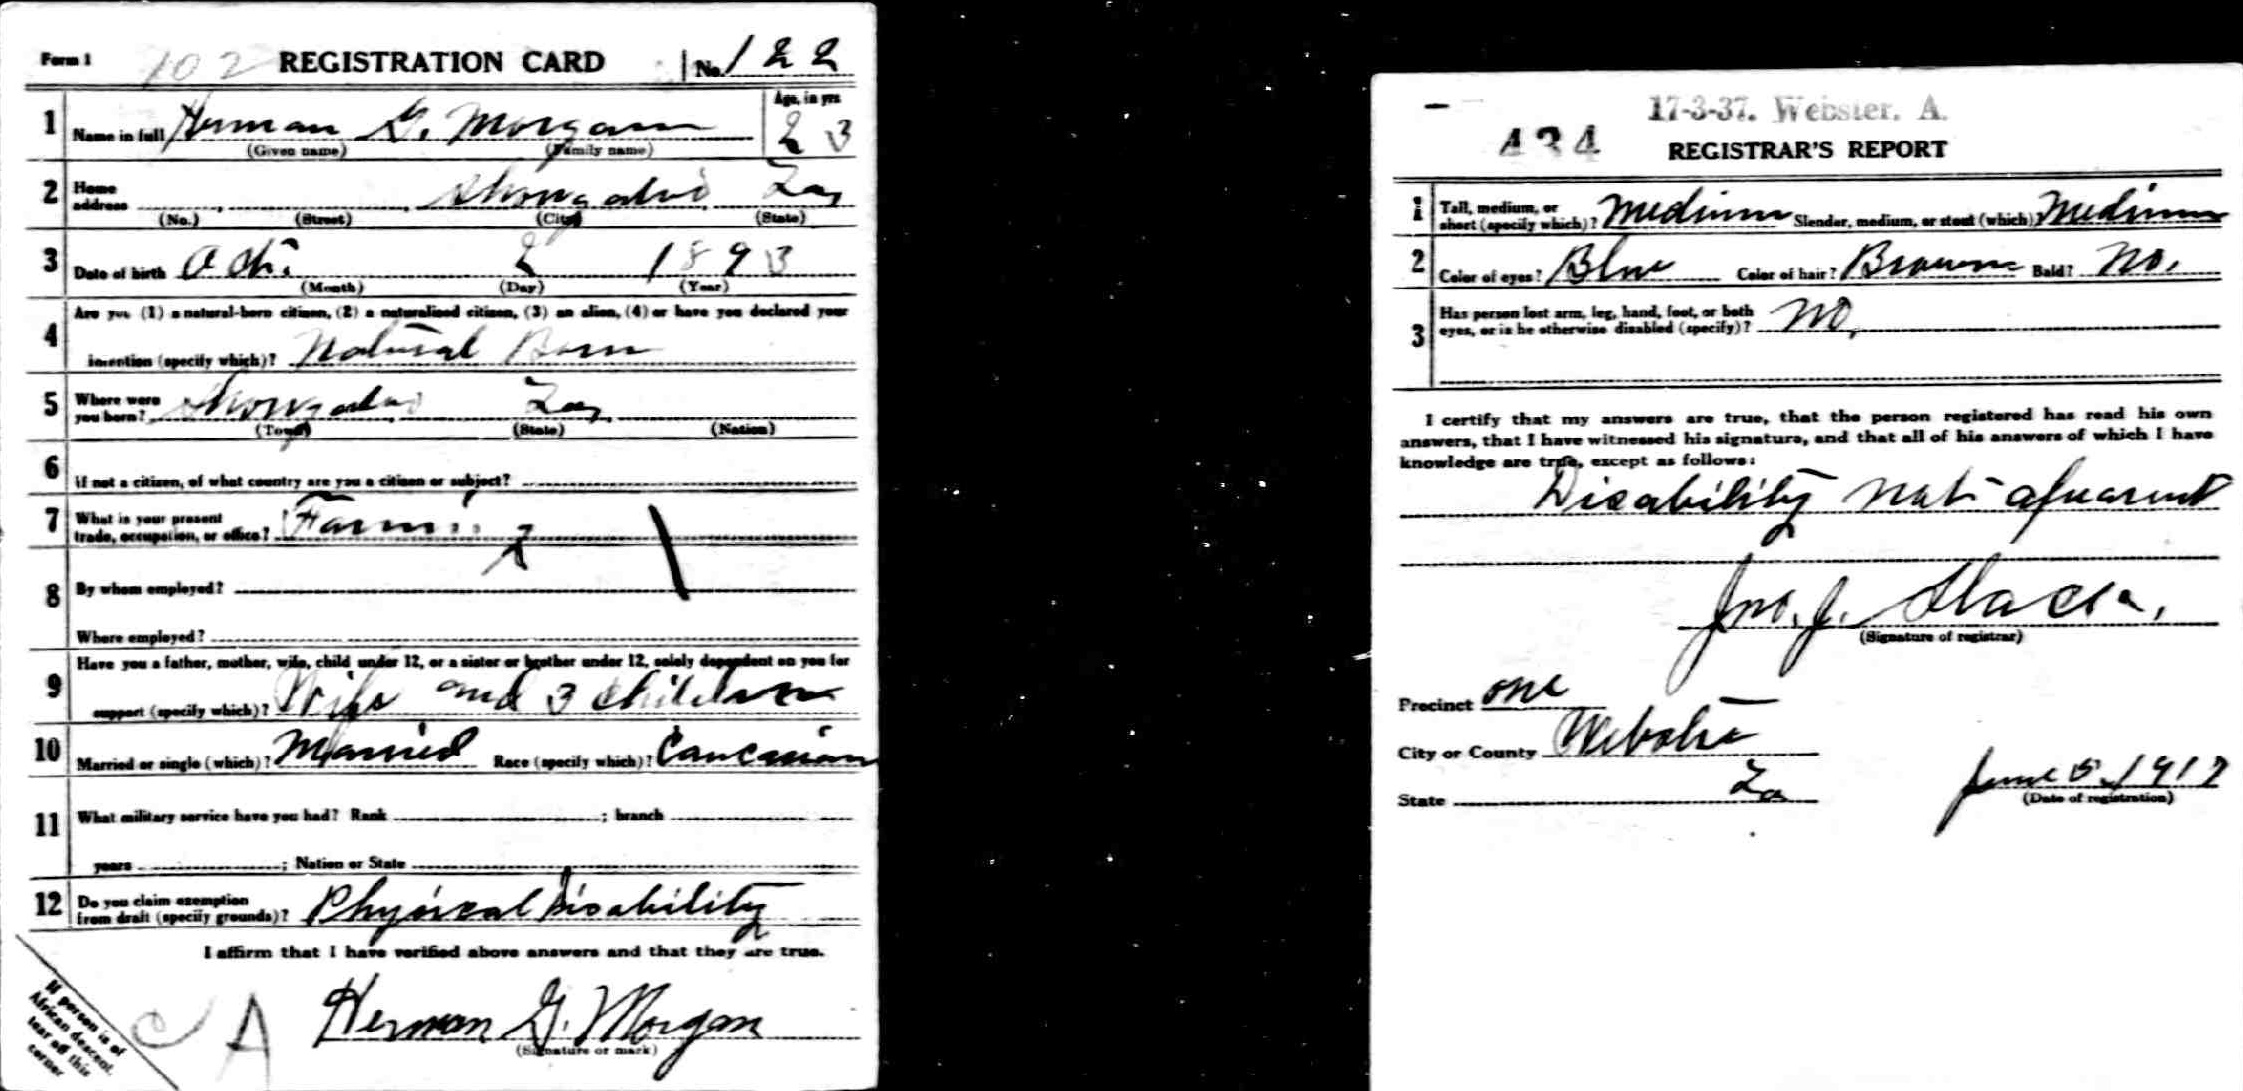 Form 1 102 REGISTRATION CARD No. 122
1 Name in full Herman G. Morgan Age, in yrs 23
(Given name) (Family name)
2 Home address Shongaloo La
(No.) (Street) (City) (State)
3 Date of birth Oct. 2 1893
(Month) (Day) (Year)
4 Are you (1) a natural-born citizen, (2) a naturalized citizen, (3) an alien, (4) or have you declared your
intention (specify which)? Natural Born
5 Where were you born? Shongaloo La
(Town) (State) (Nation)
6 If not a citizen, of what country are you a citizen or subject?
7 What is your present
trade, occupation, or office?
8 By whom employed?
Where employed?
9 Have you a father, mother, wife, child under 12, or a sister or brother under 12, solely dependent on you for
support (specify which)? Wife and 3 children
10 Married or single (which)? Married Race (specify which)? Caucasian
11 What military service have you had? Rank ; branch
years ; Nation or State
12 Do you claim exemption
from draft (specify grounds)? Physical Disability
I affirm that I have verified above answers and that they are true.
Herman G. Morgan
(Signature or mark)
If person is of
African descent,
tear off this
corner
A
17-3-37. Webster. A.
434 REGISTRAR'S REPORT
1 Tall, medium, or
short (specify which)? Medium Slender, medium, or stout (which)? Medium
2 Color of eyes? Blue Color of hair? Brown Bald? No.
3 Has person lost arm, leg, hand, foot, or both
eyes, or is he otherwise disabled (specify)? No.
I certify that my answers are true, that the person registered has read his own
answers, that I have witnessed his signature, and that all of his answers of which I have
knowledge are true, except as follows:
Disability not aparent
Jno. J.
(Signature of registrar)
Precinct one
City or County Webster
State La
June 5, 1917
(Date of registration)